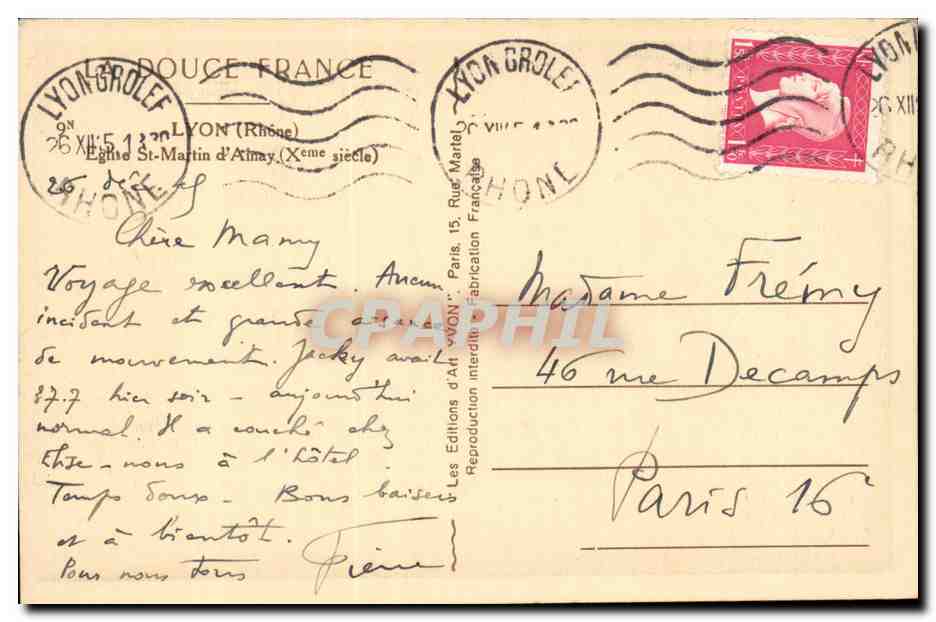 LA DOUCE FRANCE
LYON GROLEE
26 XII 5 13 30
RHONE
9N
LYON (Rhône)
Eglise St-Martin d'Ainay (Xeme siècle)
Chère Mamy
Voyage excellent. Aucun
incident et grande aisance
de mouvement. Jacky avait
37.7 hier soir - aujourd'hui
normal. Il a couché chez
Elise - nous à l'hôtel.
Temps doux - Bons baisers
et à bientôt.
Pour nous tous Pierre
Les Editions d'Art "YVON". Paris, 15, Rue Martel
Reproduction interdite - Fabrication Française
LYON GROLEE
26 XII 5 13 30
RHONE
LYON
26 XII
RHON
Madame Frémy
46 rue Decamps
Paris 16e
CPAPHIL